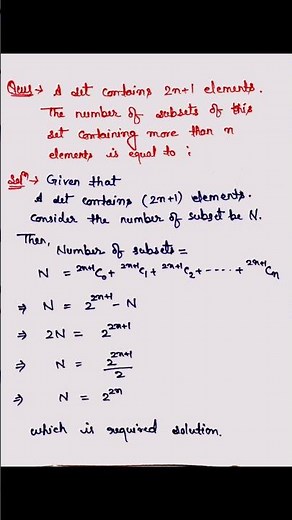 Ques → A set contains 2n+1 elements.
The number of subsets of this
set containing more than n
elements is equal to :
Solⁿ → Given that
A set contains (2n+1) elements.
Consider the number of subset be N.
Then,
Number of subsets =
N = ²ⁿ⁺¹C₀ + ²ⁿ⁺¹C₁ + ²ⁿ⁺¹C₂ + ----- + ²ⁿ⁺¹Cₙ
⇒ N = 2²ⁿ⁺¹ - N
⇒ 2N = 2²ⁿ⁺¹
⇒ N = 2²ⁿ⁺¹/2
⇒ N = 2²ⁿ
which is required solution.